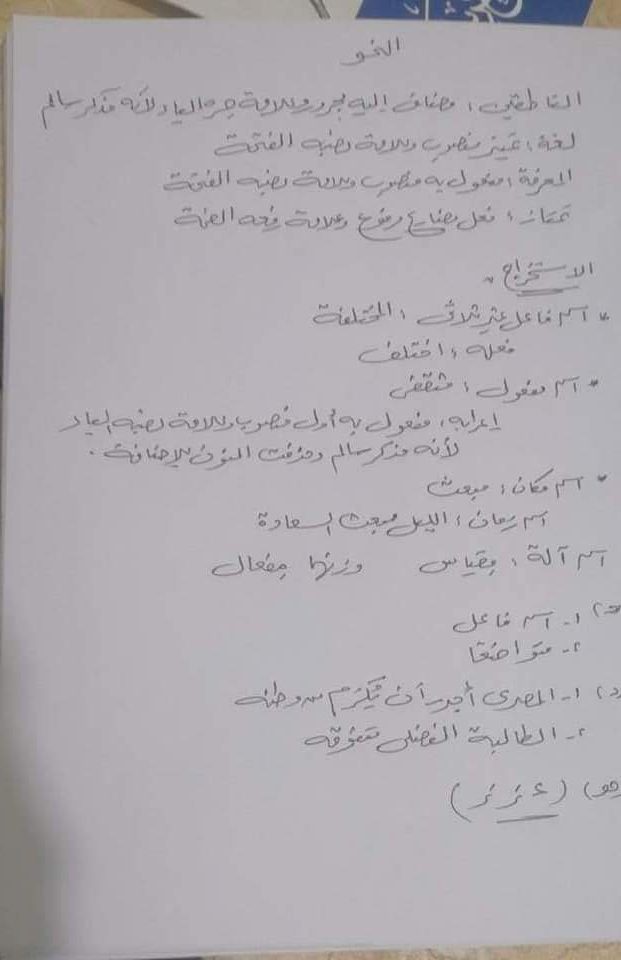 النحو
الناطقين : مضاف إليه مجرور وعلامة جره الياء لأنه مذكر سالم
لغة : تمييز منصوب وعلامة نصبه الفتحة
المعرفة : مفعول به منصوب وعلامة نصبه الفتحة
تمتاز : فعل مضارع مرفوع وعلامة رفعه الضمة
الاستخراج :
* اسم فاعل غير ثلاثى : المختلفة
فعله : اختلف
* اسم مفعول : مثقفى
إعرابه : مفعول به أول منصوب وعلامة نصبه الياء
لأنه مذكر سالم وحذفت النون للإضافة .
* اسم مكان : مبعث
اسم زمان : الليل مبعث السعادة
اسم آلة : مقياس وزنها مِفعال
١- اسم فاعل
٢- متواضعا
د) ١- المصرى أجدر أن يُكرَم من وطنه
٢- الطالبة الفضلى متفوقة
هـ) ( )